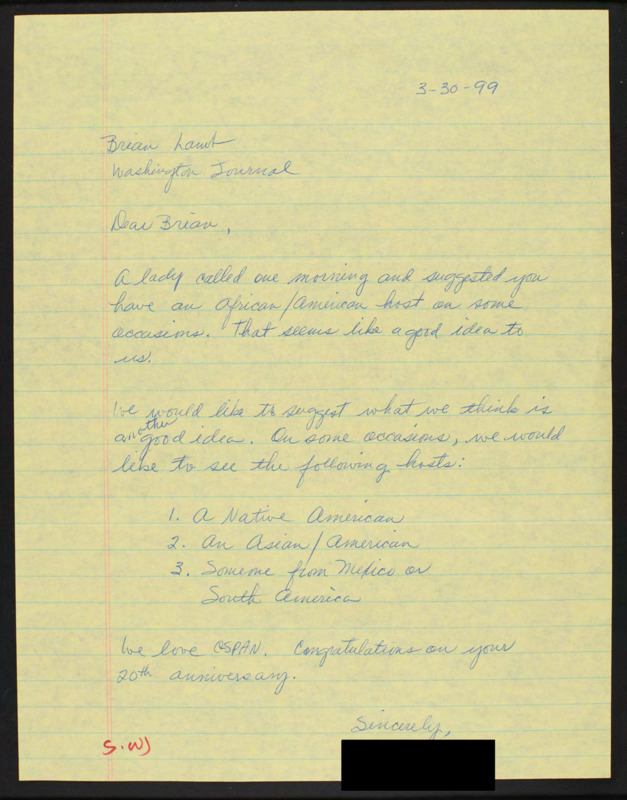 3-30-99
Brian Lamb
Washington Journal
Dear Brian,
A lady called one morning and suggested you
have an African/American host on some
occasions. That seems like a good idea to
us.
We would like to suggest what we think is
another good idea. On some occasions, we would
like to see the following hosts:
1. A Native American
2. An Asian/American
3. Someone from Mexico or
South America
We love CSPAN. Congratulations on your
20th anniversary.
Sincerely,
S.WJ